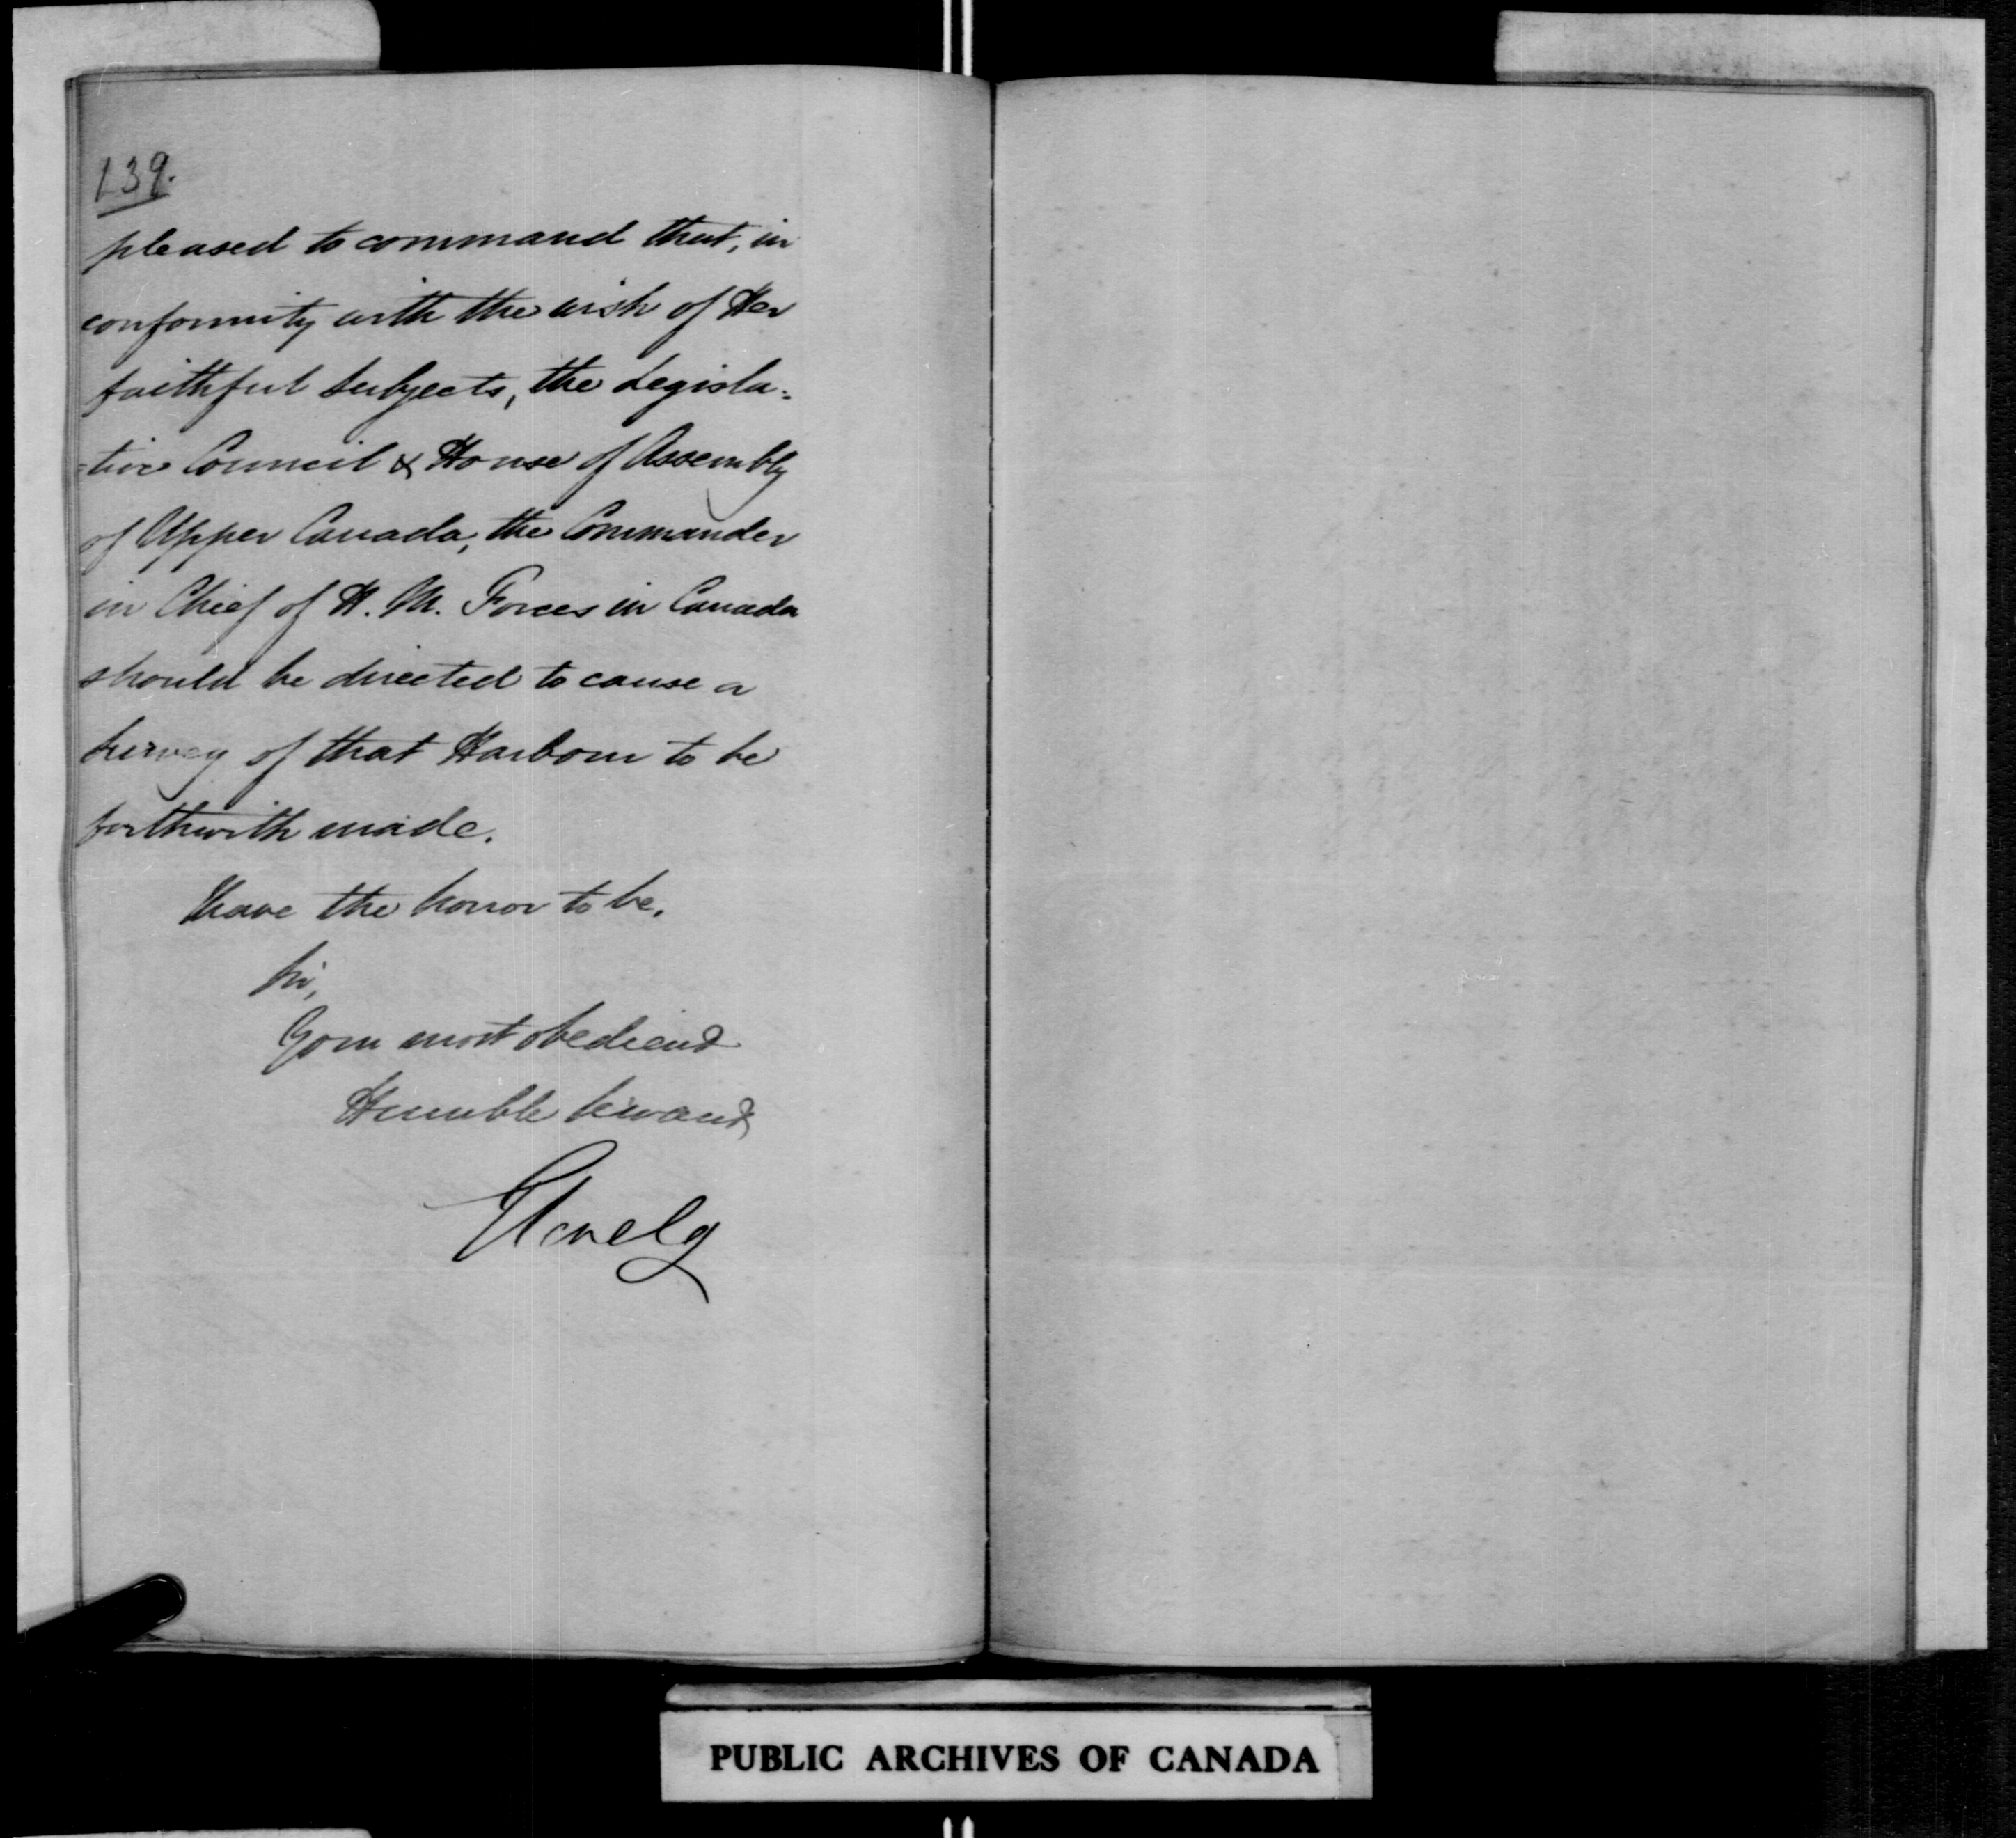 139.
pleased to command that, in
conformity with the wish of Her
faithful Subjects, the Legisla=
=tive Council & House of Assembly
of Upper Canada, the Commander
in Chief of H. M. Forces in Canada
should be directed to cause a
Survey of that Harbour to be
forthwith made.
I have the honor to be,
Sir,
Your most obedient
Humble Servant
Glenelg
PUBLIC ARCHIVES OF CANADA